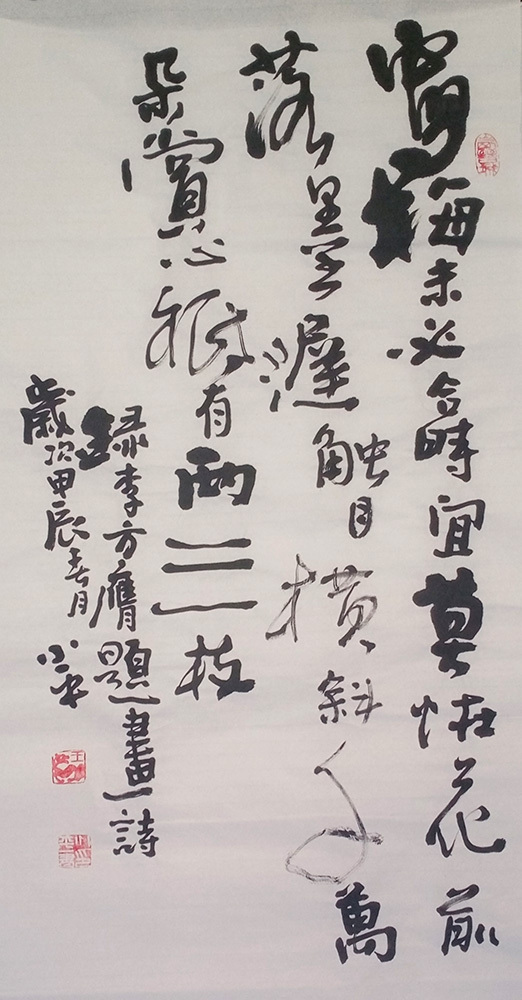 寫梅未必合時宜莫恠花前
落墨遲触目横斜千萬
朵賞心祇有兩三枝
録李方膺題畫詩
歲次甲辰春月